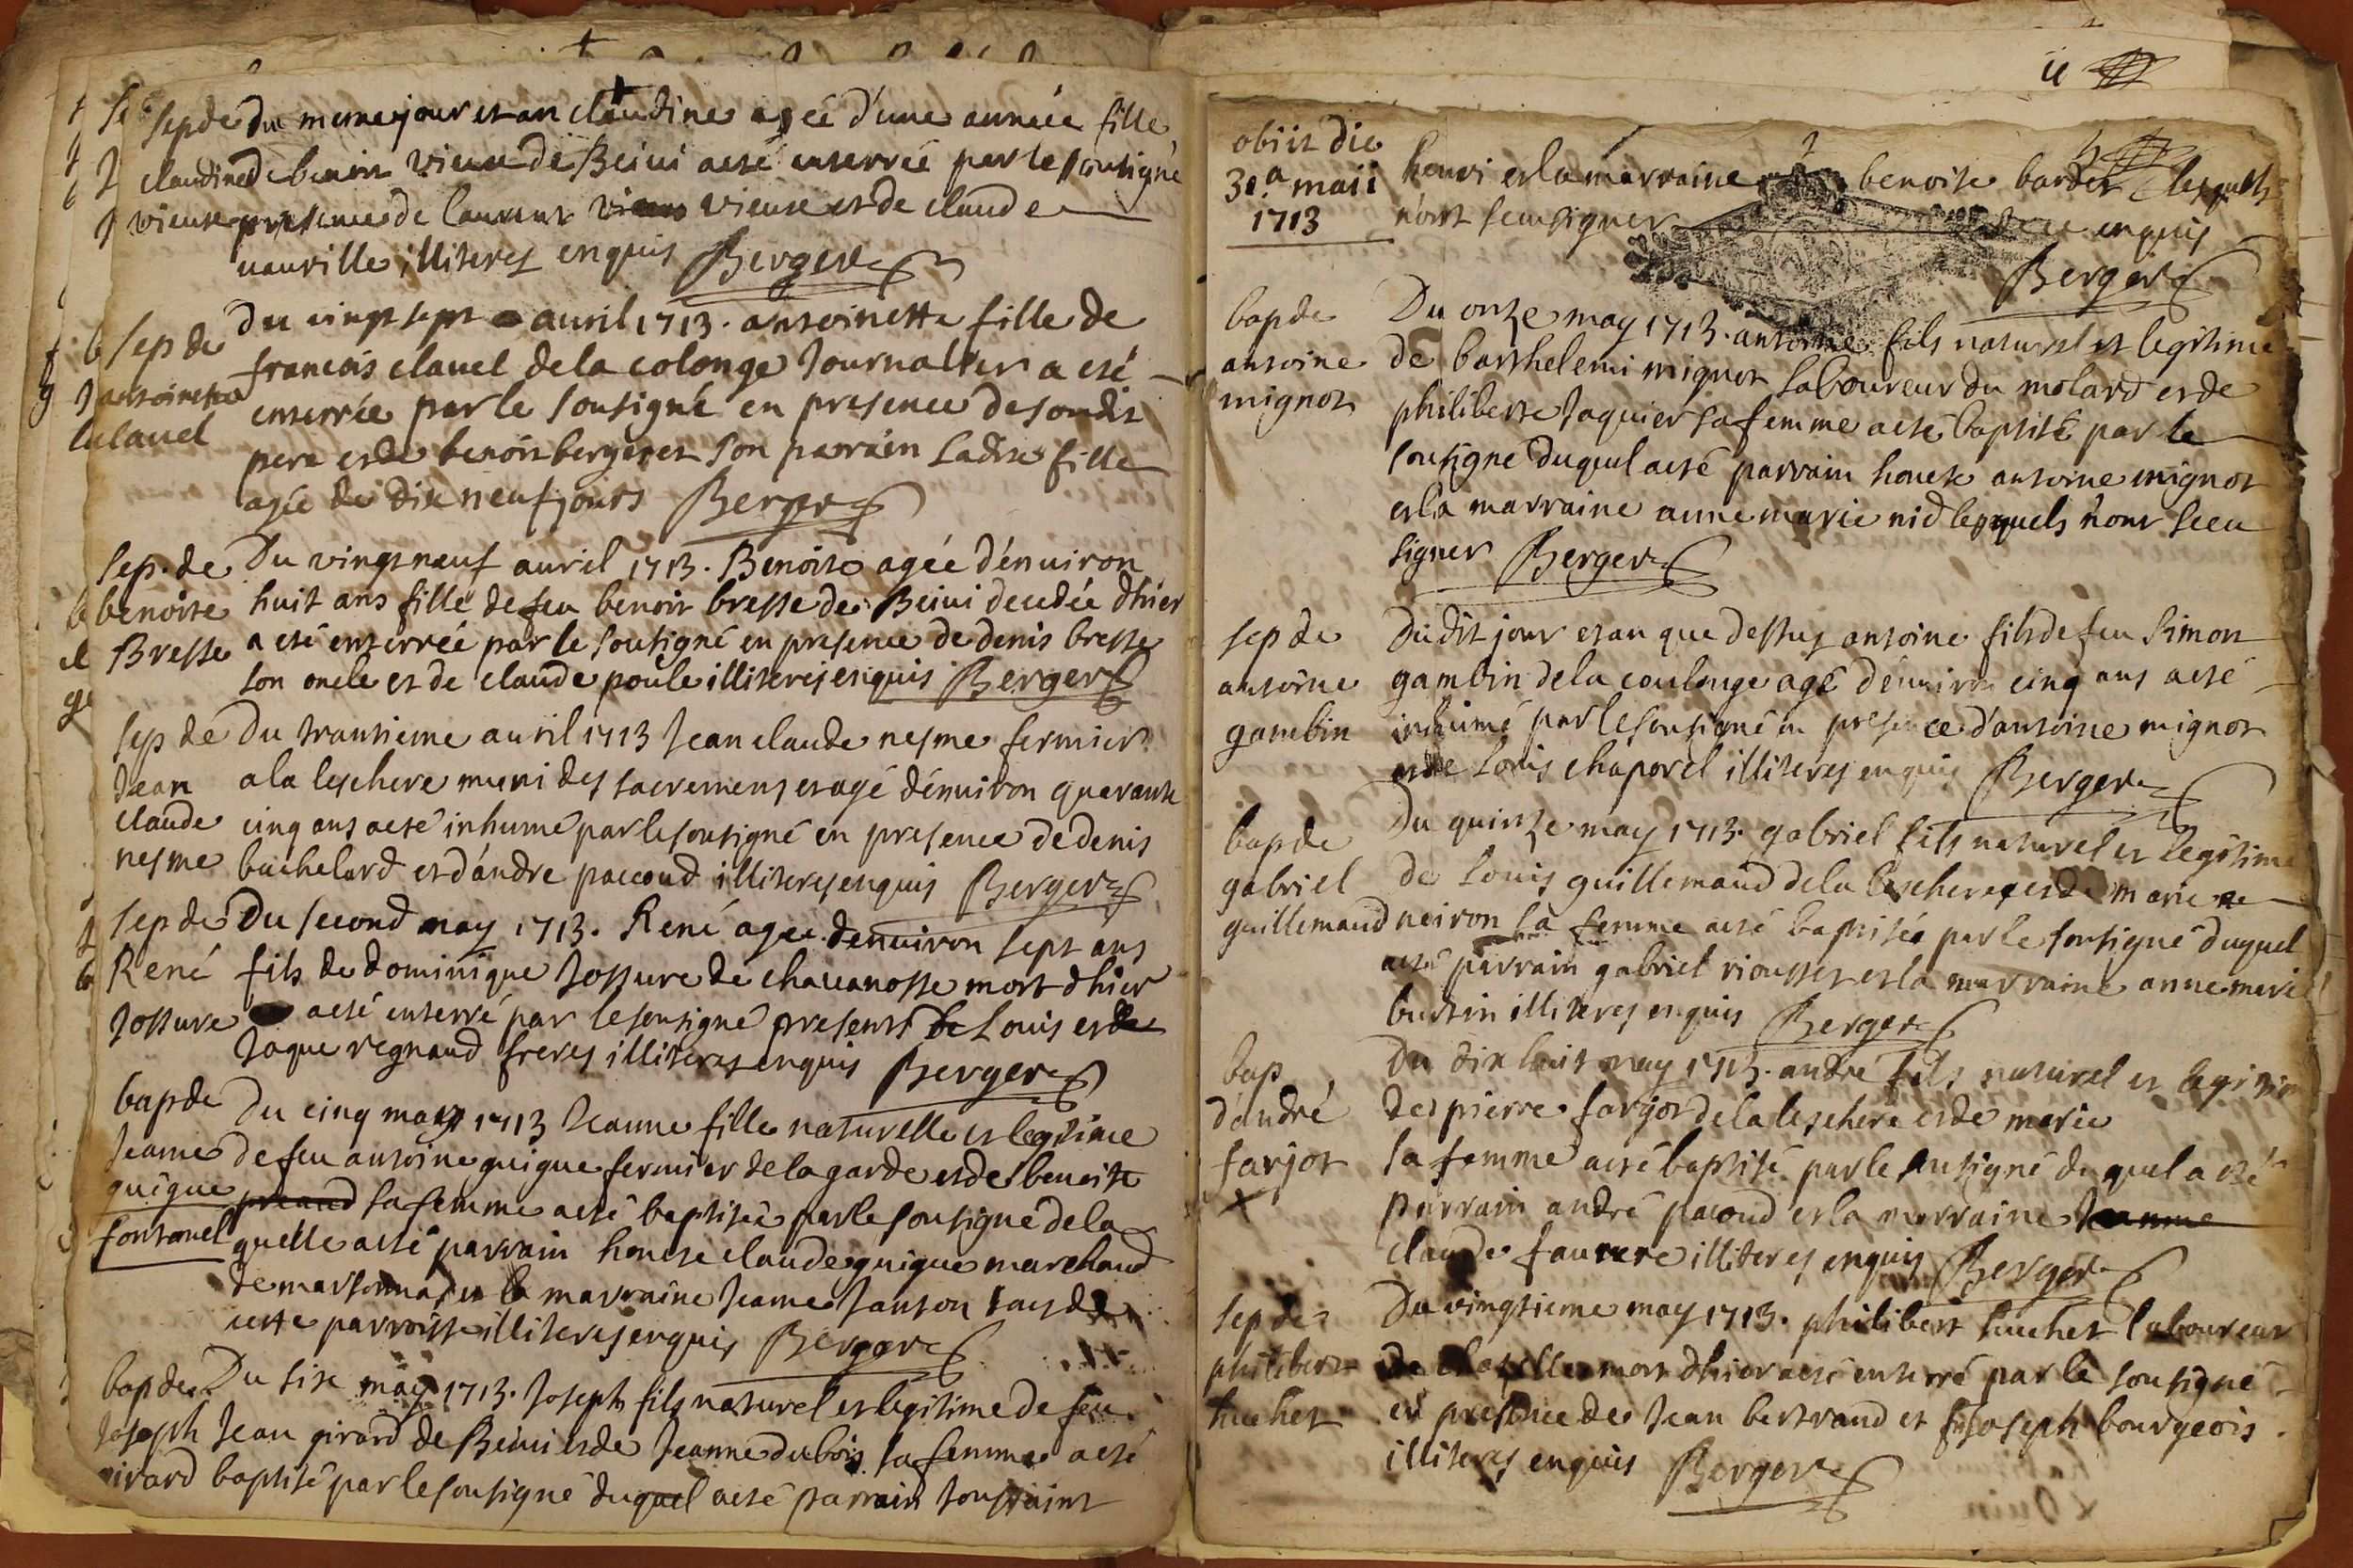 sep de du meme jour et an claudine agée d'une année fille
claudine de benoit vieux de Beini a esté enterrée par le soutigné
vieux presence de laurent vieux et de claude
nauville illiteres enquis Berger
sep de du vingt sept avril 1713. antoinette fille de
antoinette francois clavel de la colonge Journalier a esté
clavel enterrée par le soutigné en presence de sondit
pere et de benoit bergeret son parrain Ladite fille
agée de dix neuf jours Berger
sep. de Du vingt neuf avril 1713. Benoite agée d'environ
benoite huit ans fille de feu benoit bresse de Beini decedée d'hier
Bresse a esté enterrée par le soutigné en presence de denis bresse
son oncle et de claude poule illiteres enquis Berger
sep de Du trantieme avril 1713 Jean claude nesme fermier
Jean a la leschere muni des sacremens et agé d'environ quarante
claude cinq ans a esté inhumé par le soutigné en presence de denis
nesme bachelard et d'andre paccoud illiteres enquis Berger
sep de Du second may 1713. René agée denviron sept ans
René fils de dominique Jossure de chavanosse mort d'hier
Jossure a esté enterré par le soutigné presents de Louis et de
Jaque regnaud freres illiteres enquis Berger
bap de Du cinq may 1713 Jeanne fille naturelle et legitime
Jeanne de feu antoine guigue fermier de la garde et de benoite
guigue sa femme a esté baptisée par le soutigné de la
fontanel quelle a esté parrain honete claude guigue marchand
de marsonnas et la marraine Jeanne Janson tous de
cette parroisse illiteres enquis Berger
bap de Du six may 1713. Joseph fils naturel et legitime de feu
Joseph Jean girard de Beini et de Jeanne dubois sa femme a esté
girard baptisé par le soutigné duquel a esté parrain toussaint
obiit die
30a maii
1713
henri et la marraine benoite bardet lesquels
n'ont sceu signer enquis
Berger
bap de Du onze may 1713. antoine fils naturel et legitime
antoine de barthelemi mignot laboureur du molard et de
mignot philiberte Jaquier sa femme a esté baptisé par le
soutigné duquel a esté parrain honete antoine mignot
et la marraine anne marie nid lesquels n'ont sceu
signer Berger
sep de Dudit jour et an que dessus antoine fils de feu Simon
antoine gambin de la coulonge agé d'environ cinq ans a esté
gambin inhumé par le soutigné en presence d'antoine mignot
et de Louis chaporel illiteres enquis Berger
bap de Du quinze may 1713. gabriel fils naturel et legitime
gabriel de Louis guillemaud de la leschere et de marie
guillemaud neiron sa femme a esté baptisée par le soutigné duquel
a esté parrain gabriel riousset et la marraine anne marie
burtin illiteres enquis Berger
bap Du dix huit may 1713. andré fils naturel et legitime
d'andré de pierre farjot de la leschere et de marie
farjot sa femme a esté baptisé par le soutigné duquel a esté
x parrain andré pacoud et la marraine Jeanne
claude faurere illiteres enquis Berger
sep de Du vingtieme may 1713. philibert huchet laboureur
philibert mort d'hier a esté enterré par le soutigné
huchet en presence de Jean bertrand et Joseph bourgeois.
illiteres enquis Berger